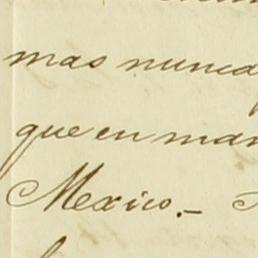 mas nunca
que en man
Mexico.–